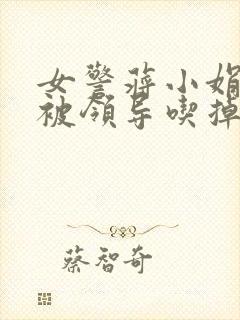 女警蒋小娟
被领导喫掉
蔡智奇